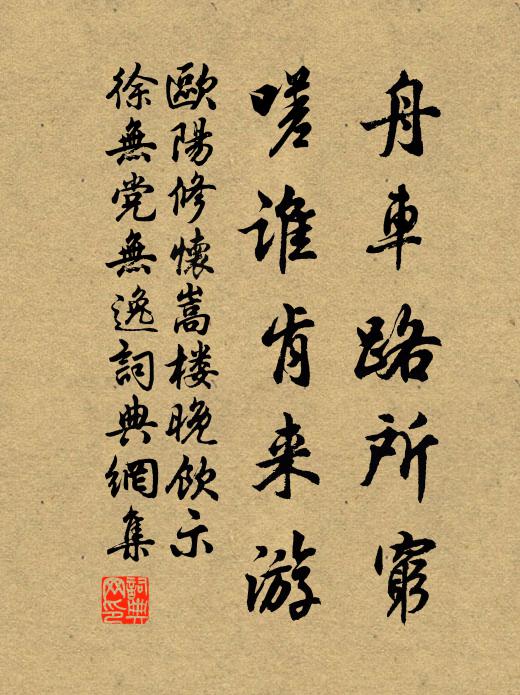 舟車路所窮
嗟谁肯来游
歐陽修懷嵩楼晚飲示
徐無党無逸詞典網集
詞典网印